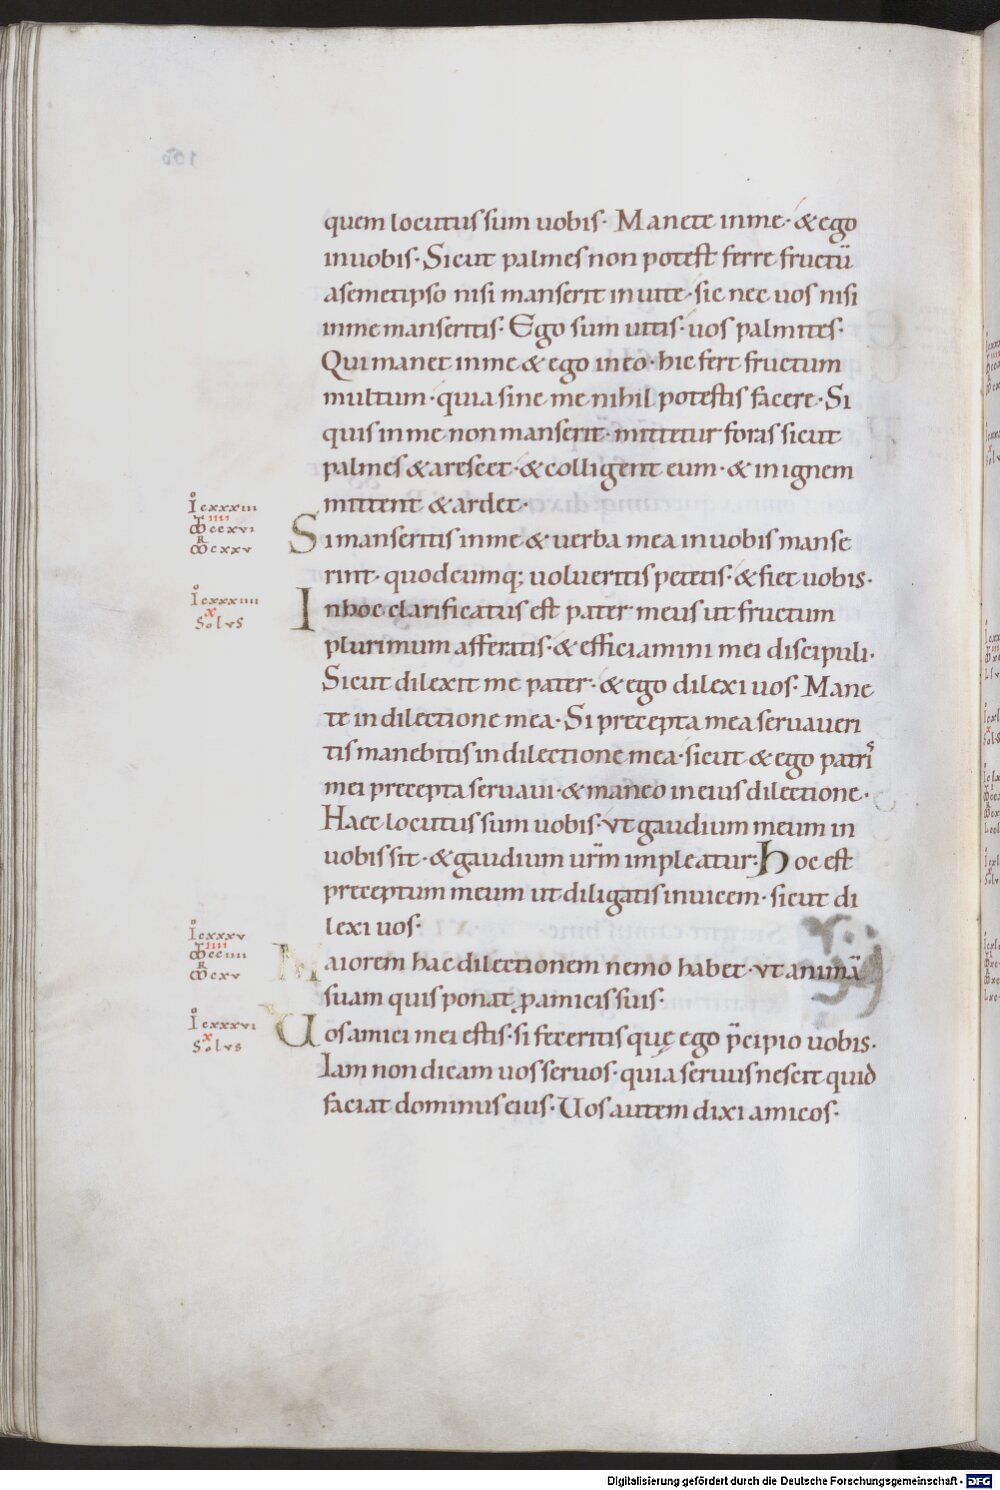 quem locutus sum uobis· Manete in me· & ego
in uobis· Sicut palmes non potest ferre fructū
a semetipso nisi manserit in uite· sic nec uos nisi
in me manseritis· Ego sum uitis· uos palmites·
Qui manet in me & ego in eo· hic fert fructum
multum· quia sine me nihil potestis facere· Si
quis in me non manserit· mittetur foras sicut
palmes & arescet· & colligent eum· & in ignem
mittent & ardet·
Si manseritis in me & uerba mea in uobis manse
rint· quodcumq; uolueritis petetis· & fiet uobis·
In hoc clarificatus est pater meus ut fructum
plurimum afferatis· & efficiamini mei discipuli·
Sicut dilexit me pater· & ego dilexi uos· Mane
te in dilectione mea· Si precepta mea seruaueri
tis manebitis in dilectione mea· sicut & ego patris
mei precepta seruaui· & maneo in eius dilectione·
Haec locutus sum uobis· vt gaudium meum in
uobis sit· & gaudium ur̄m impleatur: Hoc est
preceptum meum ut diligatis inuicem· sicut di
lexi uos·
Maiorem hac dilectionem nemo habet· vt animā
suam quis ponat ꝓ amicis suis·
Uos amici mei estis· si feceritis quę ego p̄cipio uobis·
Iam non dicam uos seruos· quia seruus nescit quid
faciat dominus eius· Uos autem dixi amicos·
Io cxxxiii
IIII
M ccxvi
R
M cxxv
Io cxxxiiii
X
Solvs
Io cxxxv
IIII
M cciiii
R
M cxv
Io cxxxvi
X
Solvs
Digitalisierung gefördert durch die Deutsche Forschungsgemeinschaft - DFG